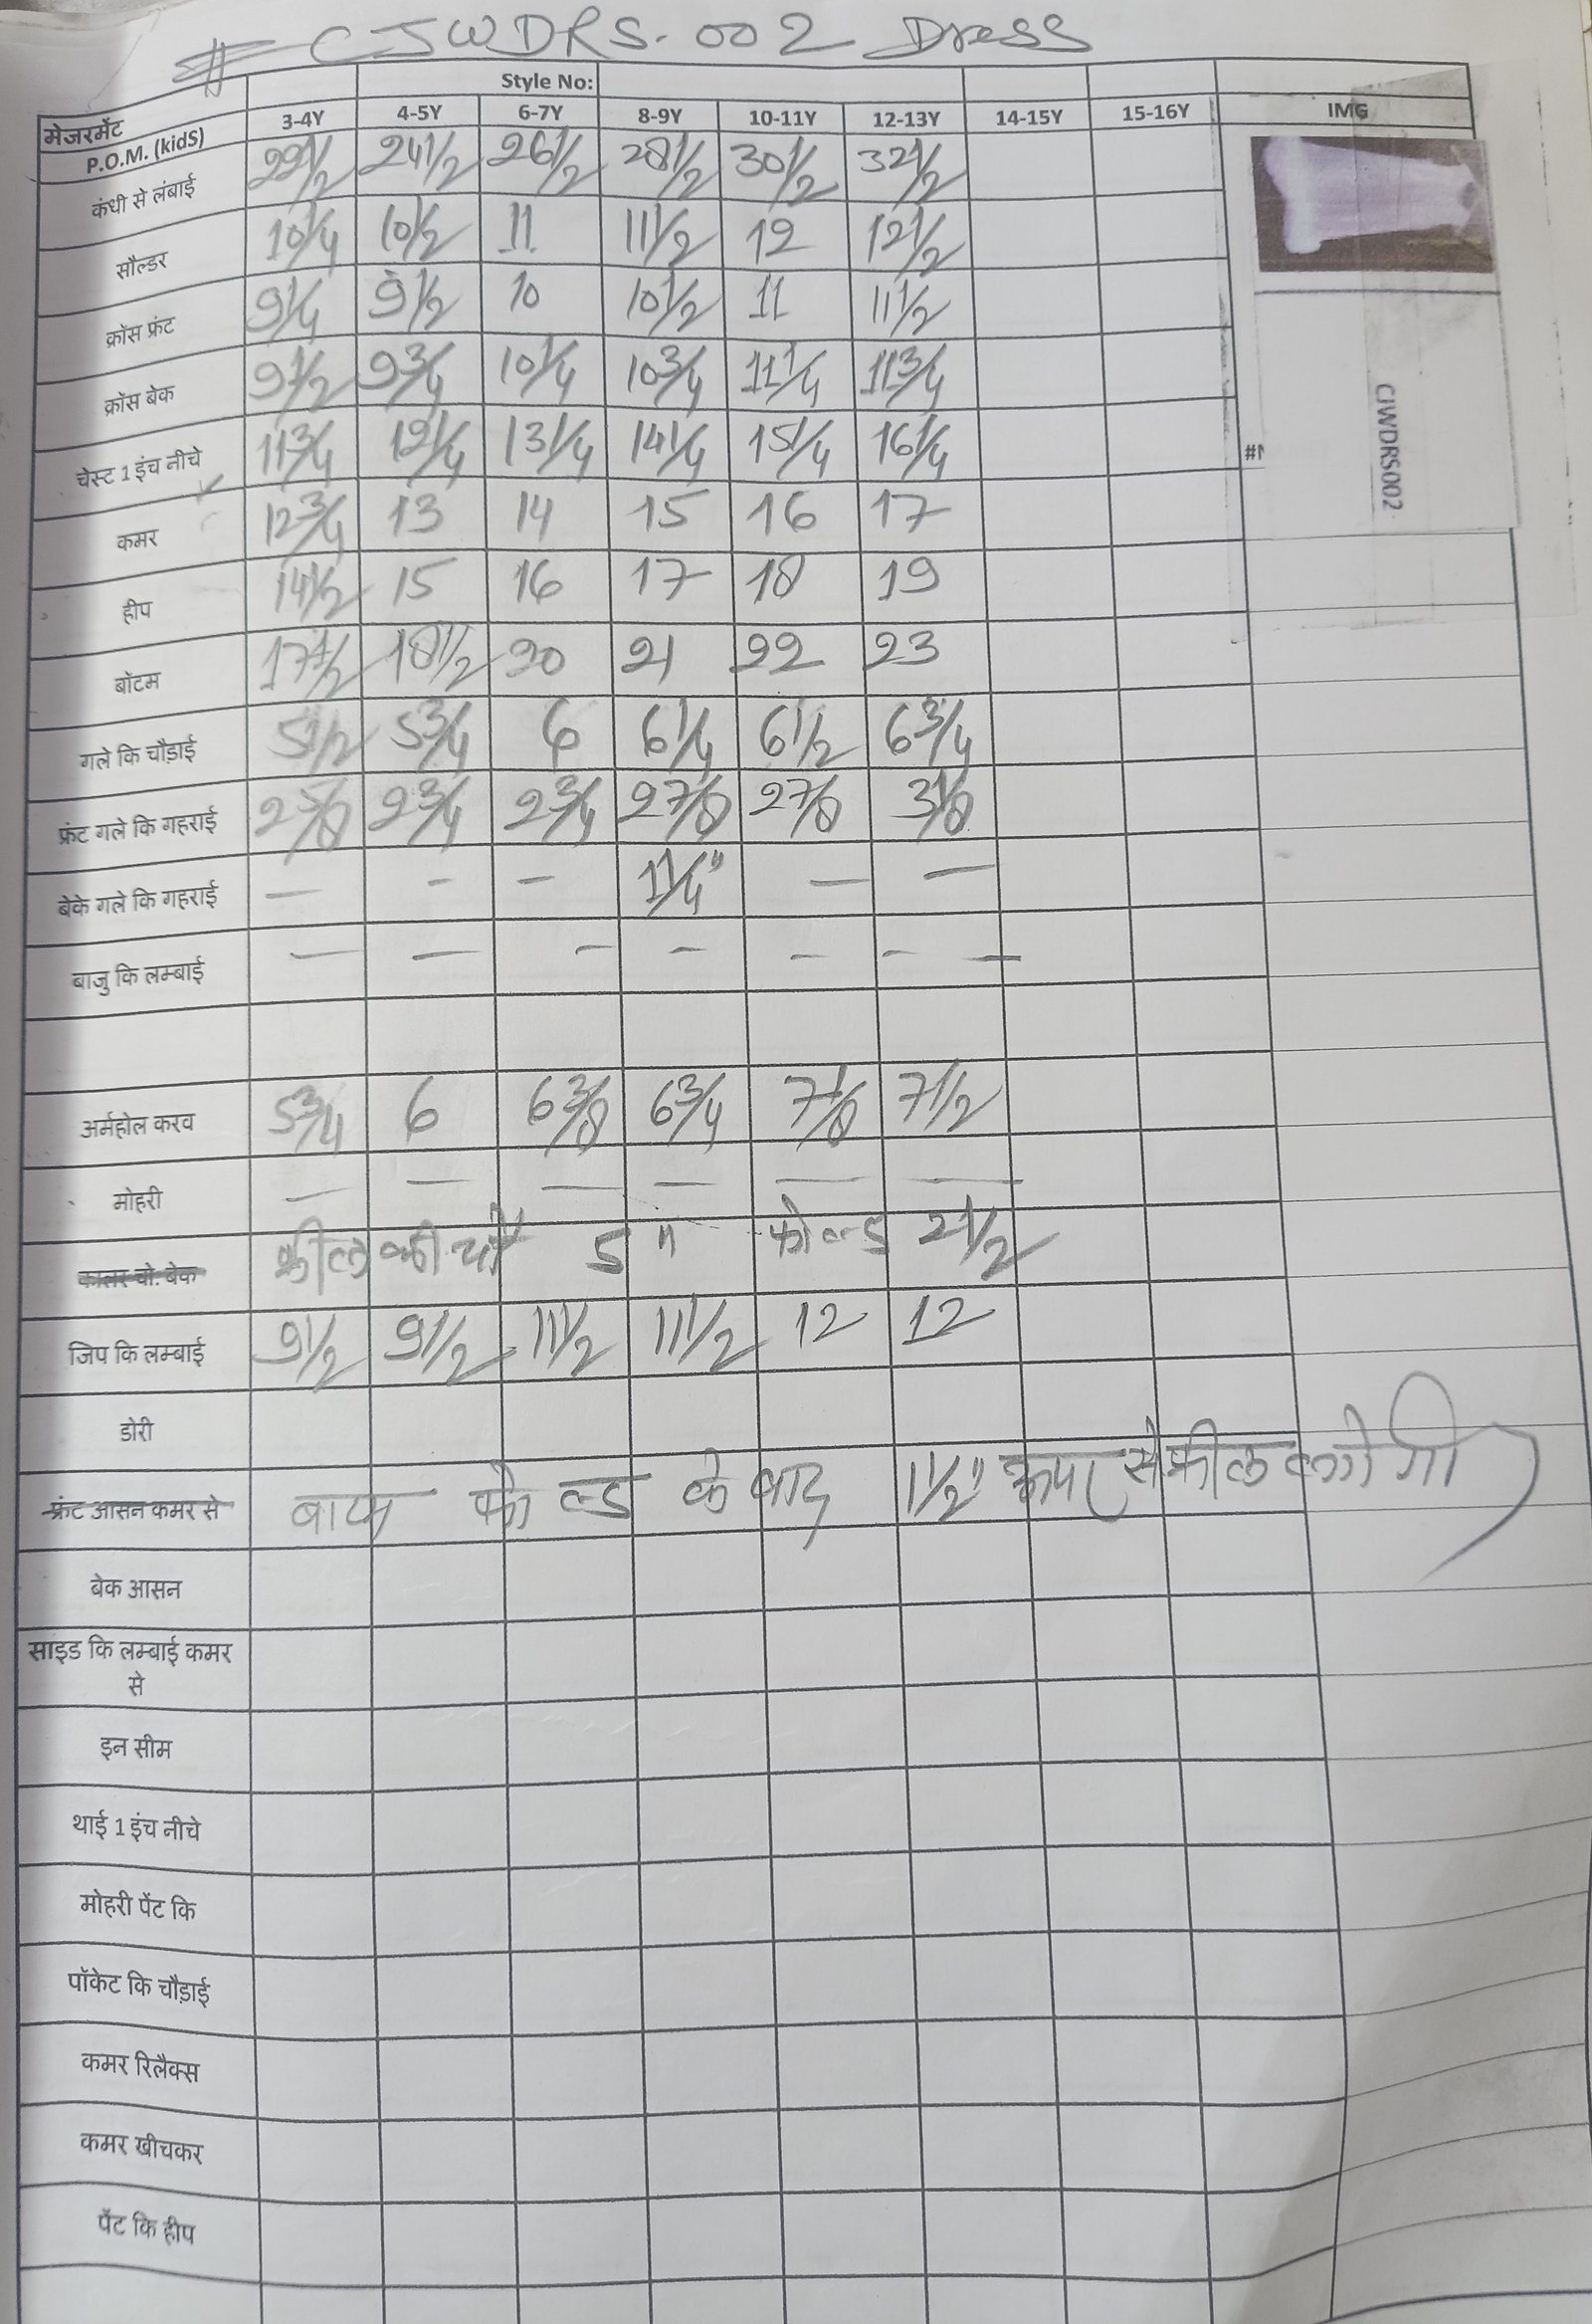 # CJWDRS-002 Dress
Style No:
मेजरमेंट P.O.M. (kidS) 3-4Y 4-5Y 6-7Y 8-9Y 10-11Y 12-13Y 14-15Y 15-16Y IMG
कंधी से लंबाई 22 1/2 24 1/2 26 1/2 28 1/2 30 1/2 32 1/2
सौल्डर 10 1/4 10 1/2 11 11 1/2 12 12 1/2
क्रॉस फ्रंट 9 1/4 9 1/2 10 10 1/2 11 11 1/2
क्रॉस बेक 9 1/2 9 3/4 10 1/4 10 3/4 11 1/4 11 3/4
चेस्ट 1 इंच नीचे 11 3/4 12 1/4 13 1/4 14 1/4 15 1/4 16 1/4
कमर 12 3/4 13 14 15 16 17
हीप 14 1/2 15 16 17 18 19
बॉटम 17 1/2 18 1/2 20 21 22 23
गले कि चौड़ाई 5 1/2 5 3/4 6 6 1/4 6 1/2 6 3/4
फ्रंट गले कि गहराई 2 5/8 2 3/4 2 3/4 2 7/8 2 7/8 3 1/8
बेके गले कि गहराई — - - 1 1/4" — —
बाजु कि लम्बाई — — - - - - —
अर्महोल करव 5 3/4 6 6 3/8 6 3/4 7 1/8 7 1/2
मोहरी — — — — — —
कालर चो. बेक फ्रील की चौ 5" फोल्ड 2 1/2
जिप कि लम्बाई 9 1/2 9 1/2 11 1/2 11 1/2 12 12
डोरी
फ्रंट आसन कमर से फोल्ड के बाद 1 1/2" ऊपर से फ्रील लगेगी
बेक आसन
साइड कि लम्बाई कमर
से
इन सीम
थाई 1 इंच नीचे
मोहरी पेंट कि
पॉकेट कि चौड़ाई
कमर रिलैक्स
कमर खीचकर
पेंट कि हीप
CJWDRS002